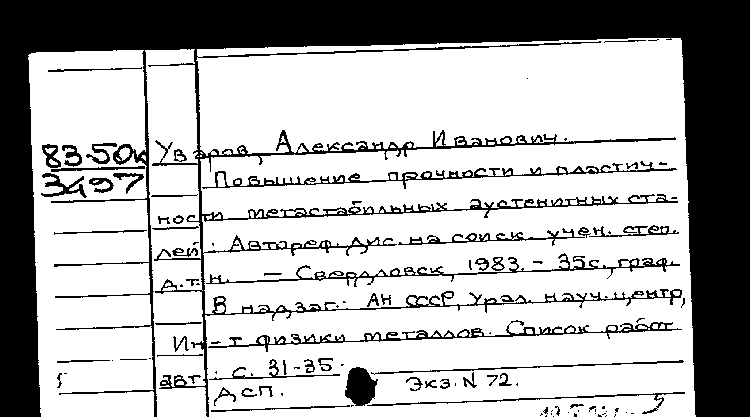 83-50к
3497
Уваров, Александр Иванович.
Повышение прочности и пластич-
ности метастабильных аустенитных ста-
лей : Автореф. дис. на соиск. учен. степ.
д.т.н. — Свердловск, 1983. - 35с., граф.
В надзаг.: АН СССР, Урал. науч. центр,
Ин-т физики металлов. Список работ
авт.: с. 31-35.
ДСП. Экз. N 72.